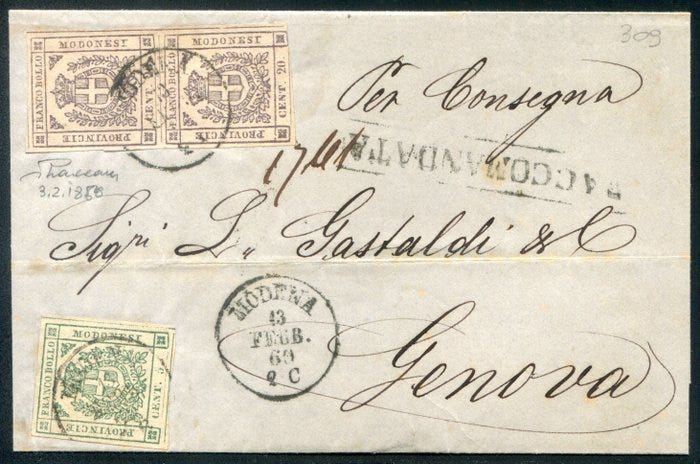 309
MODONESI MODONESI
FRANCO BOLLO FRANCO BOLLO
CENT. CENT. 20.
PROVINCIE PROVINCIE
Per Consegna
RACCOMANDATA
3.2.1859
Sigri L. Gastaldi & C
MODENA
13
FEBB.
60
2 C
Genova
MODONESI
FRANCO BOLLO
CENT. 5
PROVINCIE